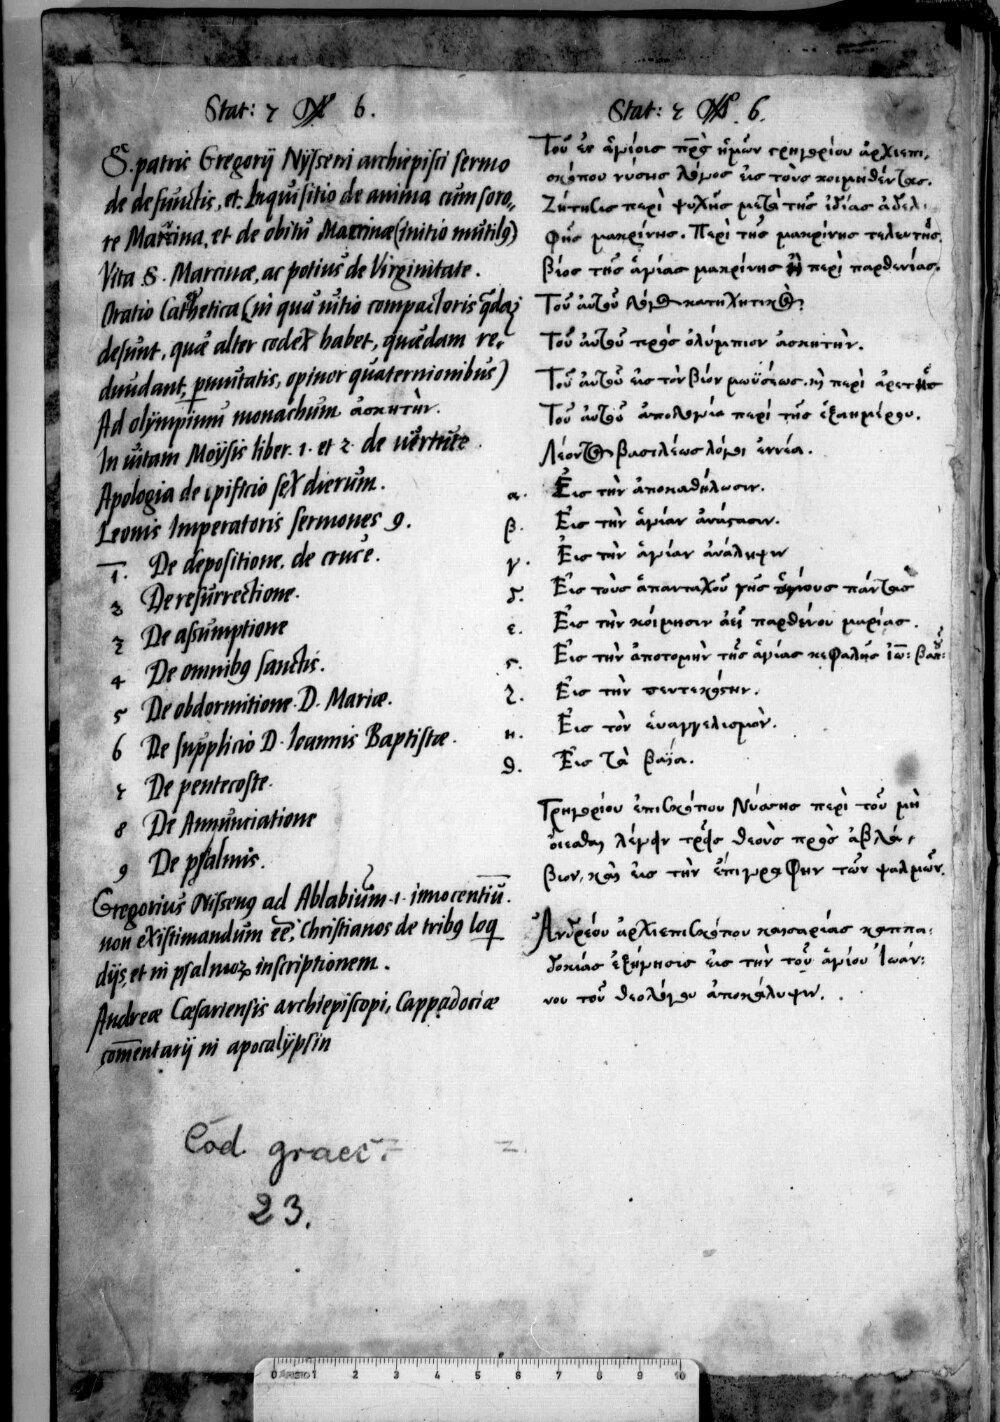 Stat: 7 No 6.
S. patris Gregorij Nysseni archiepisci sermo
de defunctis, et Inquisitio de anima cum soro,,
re Macrina, et de obitu Macrinæ (initio mutilꝰ)
Vita S. Marcinæ, ac potius de Virginitate.
Oratio Cathetica (in quâ uitio compactoris quæda
desunt, quæ alter codex habet, quædam re,
dundant, pmutatis, opinor quaternionibus)
Ad olympium monachum ἀσκητὴν.
In uitam Moysis liber. 1. et 2. de uirtute.
Apologia de opificio sex dierum.
Leonis Imperatoris sermones 9.
1. De depositione, de cruce.
3 De resurrectione.
2 De assumptione
4 De omnibꝰ sanctis.
5 De obdormitione D. Mariæ.
6 De supplicio D. Ioannis Baptistæ.
7 De pentecoste.
8 De Annunciatione
9 De psalmis.
Gregorius Nissenꝰ ad Ablabium .i. innocentiū.
non existimandum eē, Christianos de tribꝰ loq
dijs, et in psalmoꝝ inscriptionem.
Andreæ Cæsariensis archiepiscopi, Cappadociæ
com̄entarij in apocalypsin
Cod. graec.
23.
Stat: 7 No. 6.
Τοῦ ἐν ἁγίοις πρς̀ ἡμῶν γρηγορίου ἀρχιεπι,
σκόπου νύσης λόγος εἰς τοὺς κοιμηθέντας.
Ζήτησις περὶ ψυχῆς μετὰ τῆς ἰδίας ἀδελ,
φῆς μακρίνης. Περὶ τῆς μακρίνης τελευτῆς.
βίος τῆς ἁγίας μακρίνης ἢ περὶ παρθενίας.
Τοῦ αὐτοῦ λόγος κατηχητικός.
Τοῦ αὐτοῦ πρὸς ὀλύμπιον ἀσκητὴν.
Τοῦ αὐτοῦ εἰς τὸν βίον μωϋσέως. ἢ περὶ ἀρετῆς
Τοῦ αὐτοῦ ἀπολογία περὶ τῆς ἑξαημέρου.
Λέοντος βασιλέως λόγοι ἐννέα.
α. Εἰς τὴν ἀποκαθήλωσιν.
β. Εἰς τὴν ἁγίαν ἀνάστασιν.
γ. Εἰς τὴν ἁγίαν ἀνάληψιν
δ. Εἰς τοὺς ἁπανταχοῦ γῆς ἁγίους πάντας
ε. Εἰς τὴν κοίμησιν ἀεὶ παρθένου μαρίας.
ς. Εἰς τὴν ἀποτομὴν τῆς ἁγίας κεφαλῆς ἰω: βαπ:
ζ. Εἰς τὴν πεντεκοστην.
η. Εἰς τὸν ἐυαγγελισμὸν.
θ. Εἰς τὰ βαΐα.
Γρηγορίου ἐπισκόπου Νύσσης περὶ τοῦ μὴ
οἴεσθαι λέγειν τρεῖς θεοὺς πρὸς ἀβλά,
βιον, καὶ εἰς τὴν ἐπιγραφην τῶν ψαλμῶν.
Ἀνδρέου ἀρχιεπισκόπου καισαρίας καππα,
δοκίας ἐξήγησις εἰς τὴν τοῦ ἁγίου Ἰωάν:
νου τοῦ θεολόγου ἀποκάλυψιν.
0 ARISTO 1 2 3 4 5 6 7 8 9 10